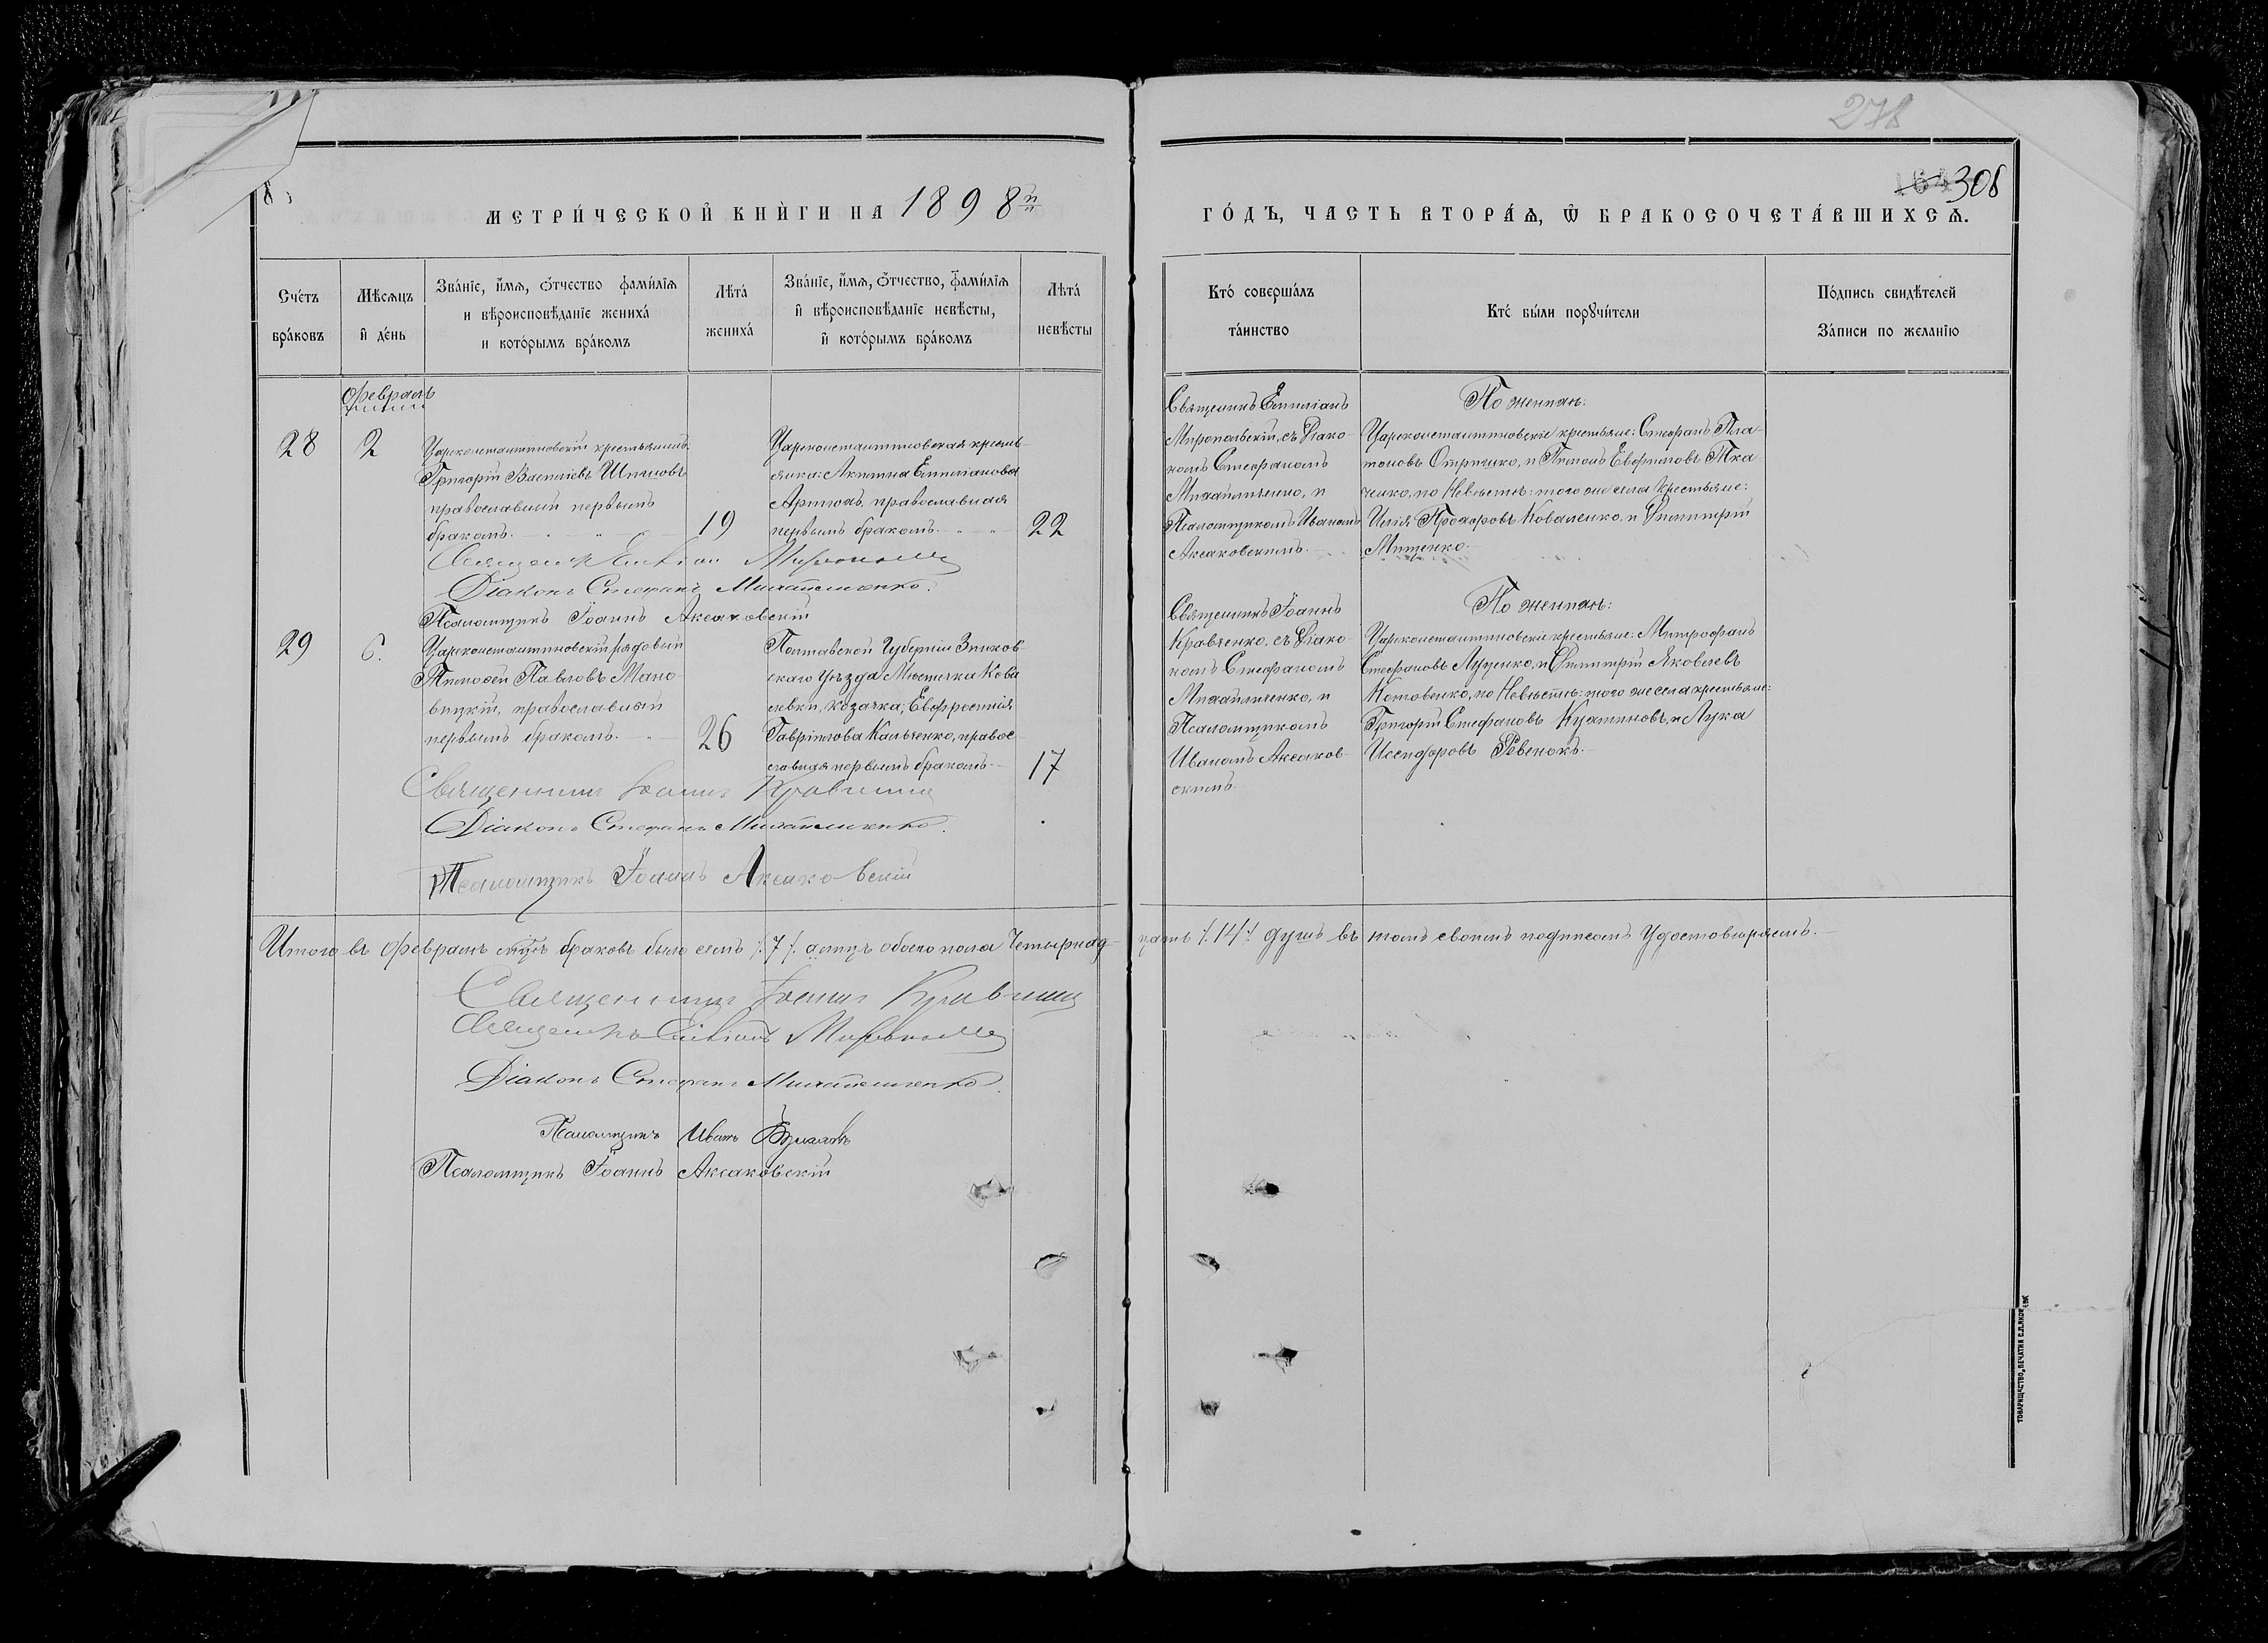 278
308
МЕТРИ́ЧЕСКОЙ КНИ́ГИ НА 1898й
ГО́ДЪ, ЧАСТЬ ВТОРА́Ѧ, Ѿ БРАКОСОЧЕТА́ВШИХСѦ.
Сче́тъ бра́ковъ
Мѣсяцъ и҆ де́нь
Зва́нїе, и҆́мѧ, ѻ҆́тчество фами́лїѧ
и вѣроисповѣ́данїе жениха́
и кото́рымъ бра́комъ
Лѣта́ жениха́
Зва́нїе, и҆́мѧ, ѻ҆́тчество, фами́лїѧ
и҆ вѣроисповѣ́данїе невѣ́сты,
и҆ кото́рымъ бра́комъ
Лѣта́ невѣ́сты
Кто́ соверша́лъ
та́инство
Кто́ бы́ли порꙋчи́тели
По́дпись свидѣ́телей
За́писи по жела́нїю
Февраль
28
2
Цареконстантиновскій крестьянинъ
Григорій Василіевъ
православный первымъ
бракомъ.
19
Цареконстантиновская кресть-
янка: Акилина Емиліанова
православная
первымъ бракомъ.
22
Священникъ Емиліанъ
Миропольскій, съ Діако-
номъ Стефаномъ
Михайличенко, и
Псаломщикомъ Иваномъ
Аксаковскимъ.
По женихѣ:
Цареконстантиновскіе крестьяне: Стефанъ Пла-
тоновъ Отришко, и Пименъ Евфимовъ Тка-
ченко, по Невѣстѣ: того же села крестьяне:
Илія Прохоровъ Коваленко, и Димитрій
Мищенко.
Священникъ Емиліанъ Миропольскій
Діаконъ Стефанъ Михайличенко.
Псаломщикъ Іоаннъ Аксаковскій
29
6.
Цареконстантиновскій рядовый
Тимофей Павловъ Мано-
вицкій, православный
первымъ бракомъ.
26
Полтавской Губерніи Зиньков-
скаго Уѣзда Мѣстечка Кова
левки, козачка; Евфросинія
Гавріилова Кальченко, правос-
лавная первымъ бракомъ.
17
Священникъ Іоаннъ
Кравченко, съ Діако-
номъ Стефаномъ
Михайличенко, и
Псаломщикомъ
Иваномъ Аксаков-
скимъ.
По женихѣ:
Цареконстантиновскіе крестьяне: Митрофанъ
Стефановъ Луценко, и Димитрій Яковлевъ
Котовенко, по Невѣстѣ: того же села крестьяне:
Григорій Стефановъ и Лука
Ревенокъ.
Священникъ Іоаннъ Кравченко
Діаконъ Стефанъ Михайличенко.
Псаломщикъ Іоаннъ Аксаковскій
Итого въ Февралѣ мцѣ браковъ было семь /:7/: а лицъ обоего пола четырнад-
цать /:14/: душъ въ томъ своимъ подписомъ удостовѣряемъ.
Священникъ Іоаннъ Кравченко
Священникъ Емиліанъ Миропольскій
Діаконъ Стефанъ Михайличенко.
Псаломщикъ Иванъ
Псаломщикъ Іоаннъ Аксаковскій